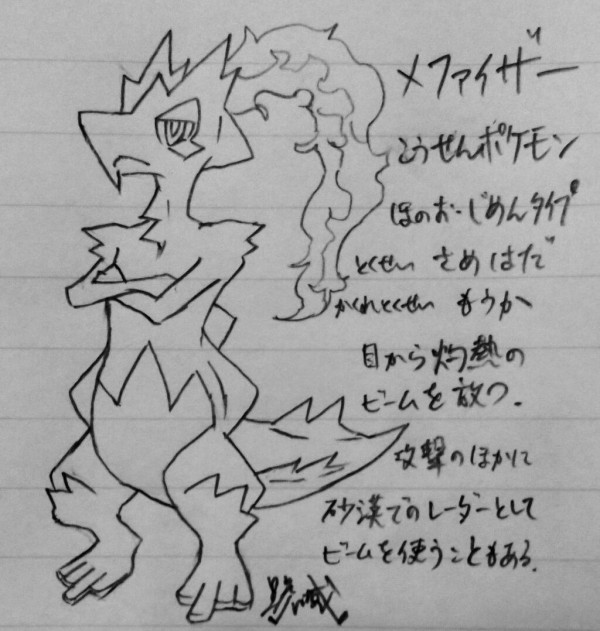 メファイザー
こうせんポケモン
ほのお・じめんタイプ
とくせい さめはだ
かくれとくせい もうか
目から灼熱の
ビームを放つ.
攻撃のほかに
砂漠でのレーダーとして
ビームを使うこともある.